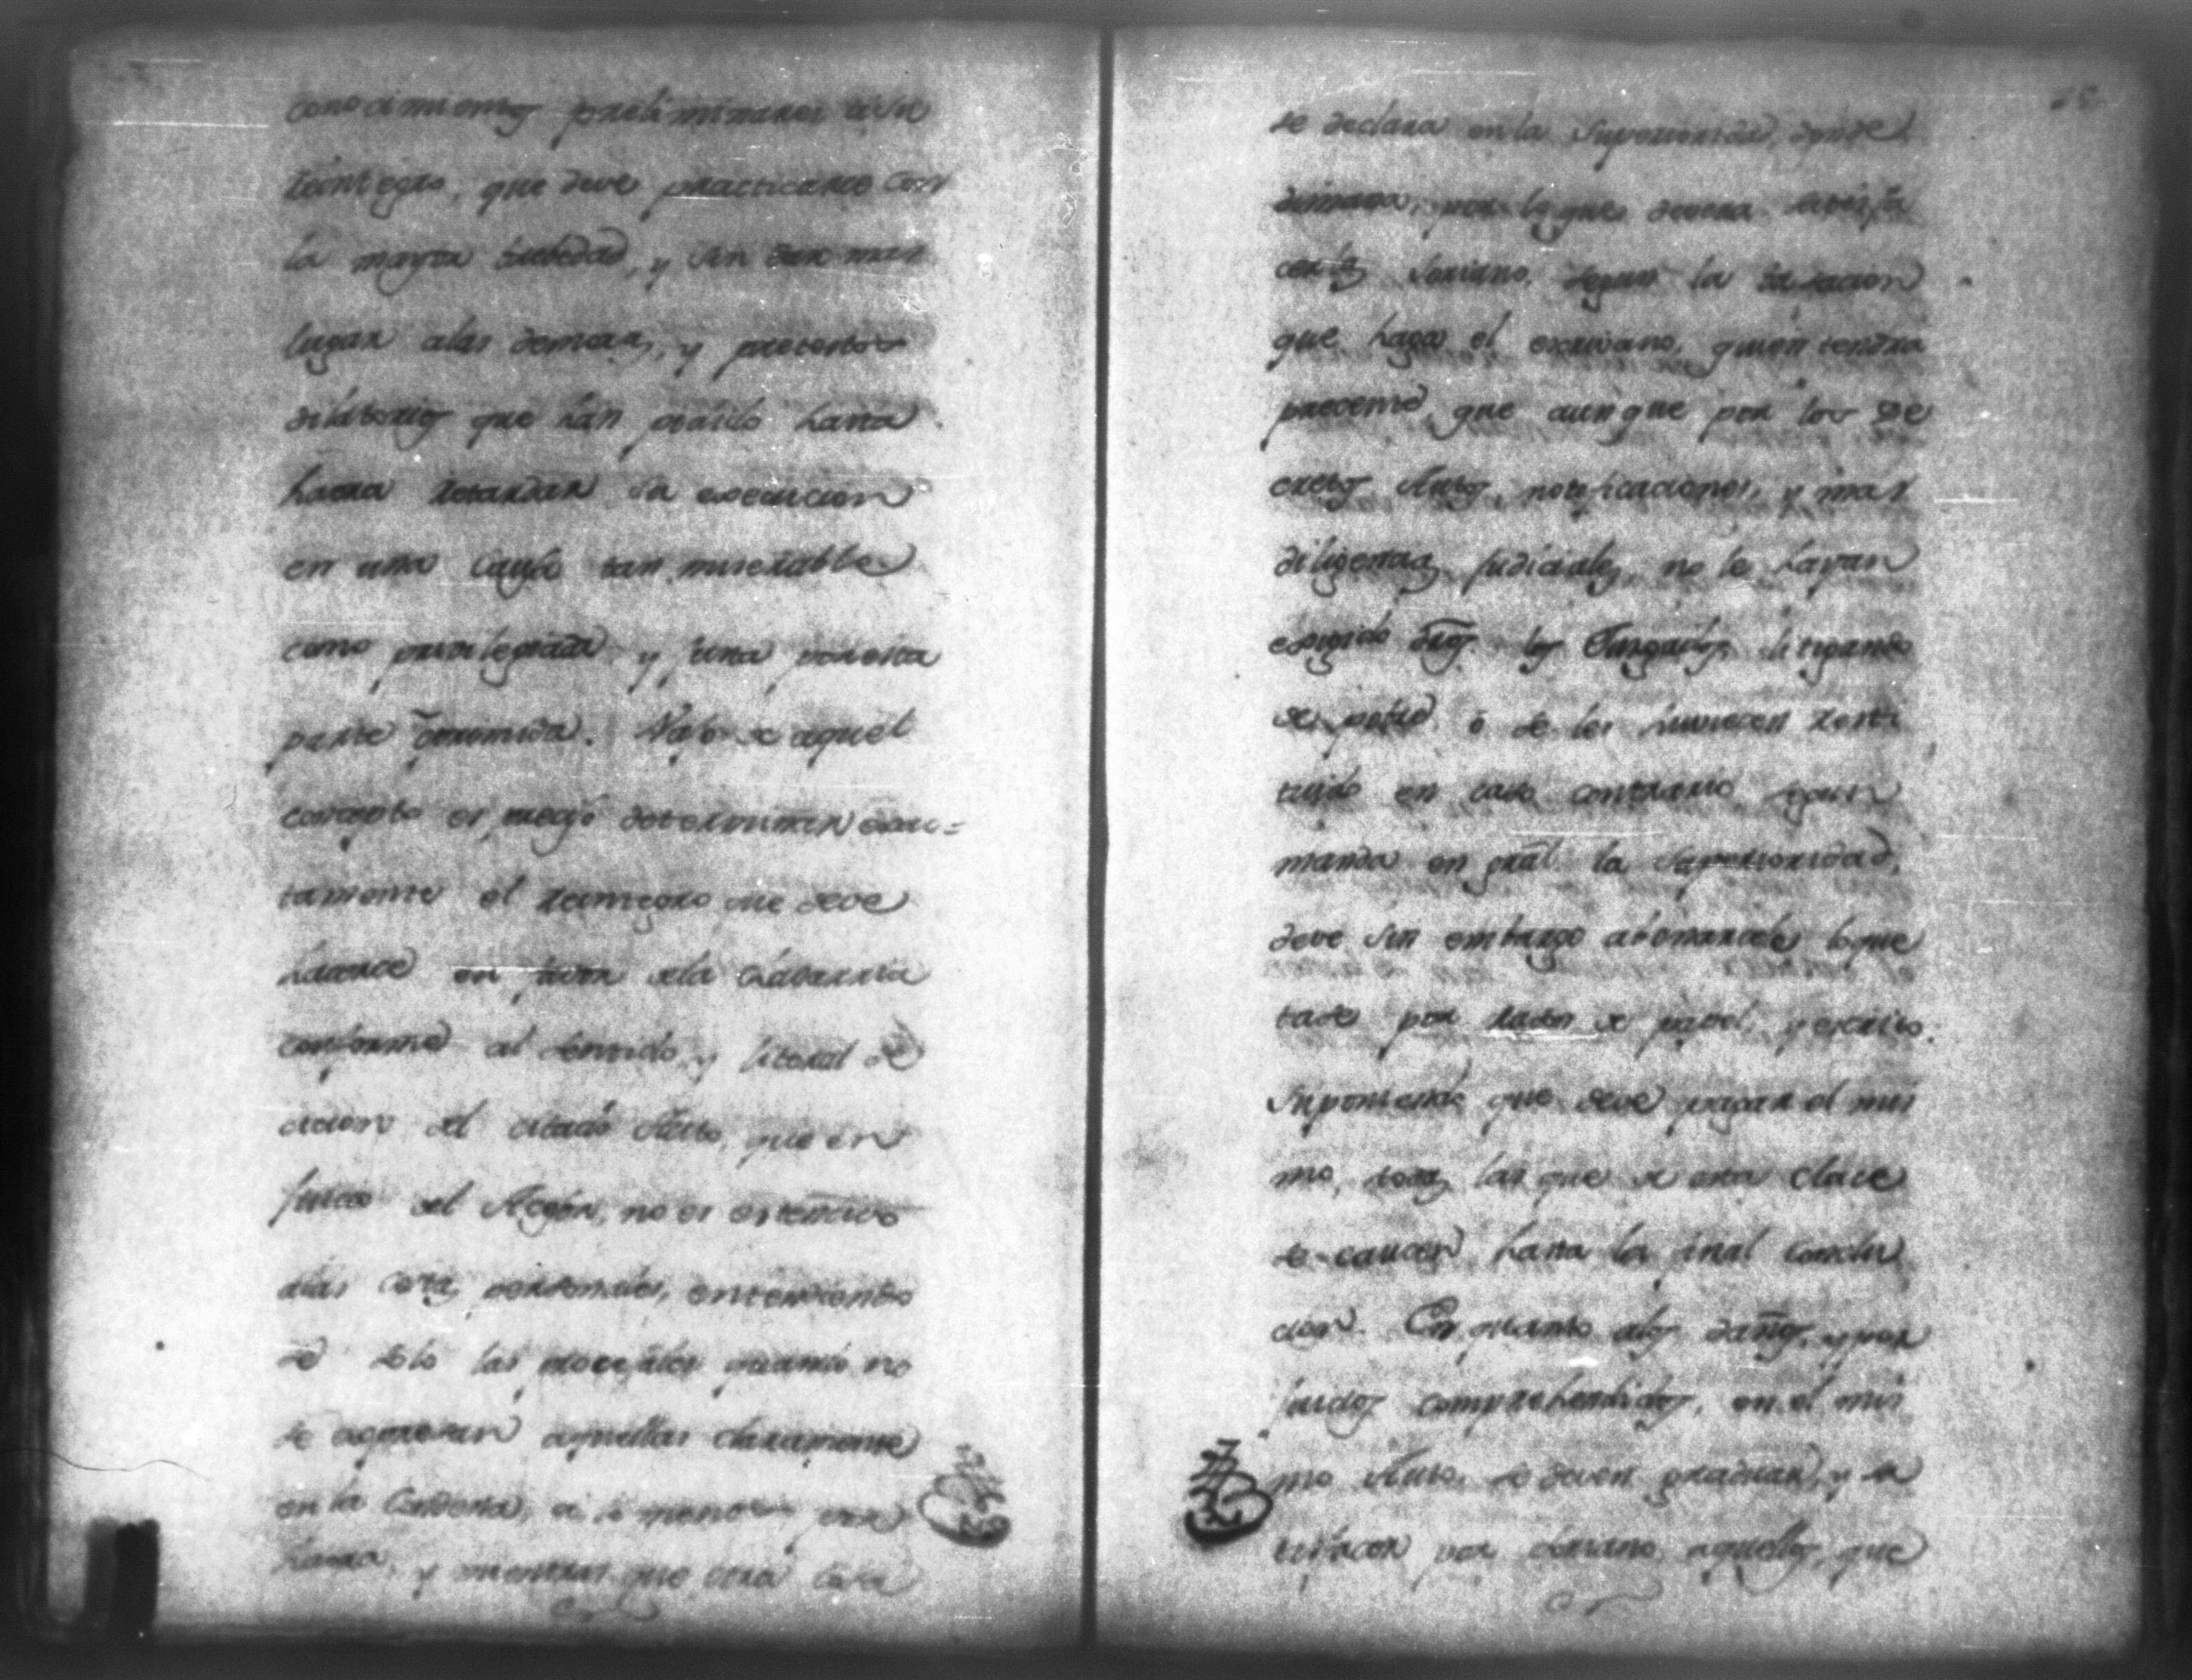 conocimientos preliminares a su
reintegro, que deve practicarse con
la mayor brebedad, y sin dar mas
lugar a las demoras, y pretestos
dilatorios que han podido hasta
haora retardar su execucion
en una causa tan miserable
como privilegiada y una pobresita
parte oprimida. Vajo de aquel
concepto es presiso determinar exac=
tamente el reintegro que deve
hacerse en favor de la Chavarria
conforme al sentido, y literal de
cicion del citado Auto, que en
juicio del Acesor, no es estensivo
a las costas personales, entendiendo
se solo las procesales quando no
se expresan aquellas claramente
en la condena, a lo menos por
haora, y mientras que otra cosa
se declara en la Superioridad, donde
dimana, por lo que devera satisfa
cerlas Soriano, segun la tasacion
que haga el escrivano, quien tendra
presente, que aunque por los De
cretos Autos, notificaciones, y mas
diligencias judiciales, no le hayan
exigido dros. los Jusgados, litigando
de pobre o se les huviesen resti
tuido en caso contrario, segun
manda en gral. la Superioridad,
deve sin embargo abonarsele lo que
tase por razon de papel, y escrito.
Suponiendo que deve pagar el mis
mo, todas las que de esta clace
se causen hasta la final conclu
cion. En quanto a los daños, y per
juicios comprehendidos, en el mis
mo Auto, se deven graduar, y sa
tisfacer por Soriano aquellos, que